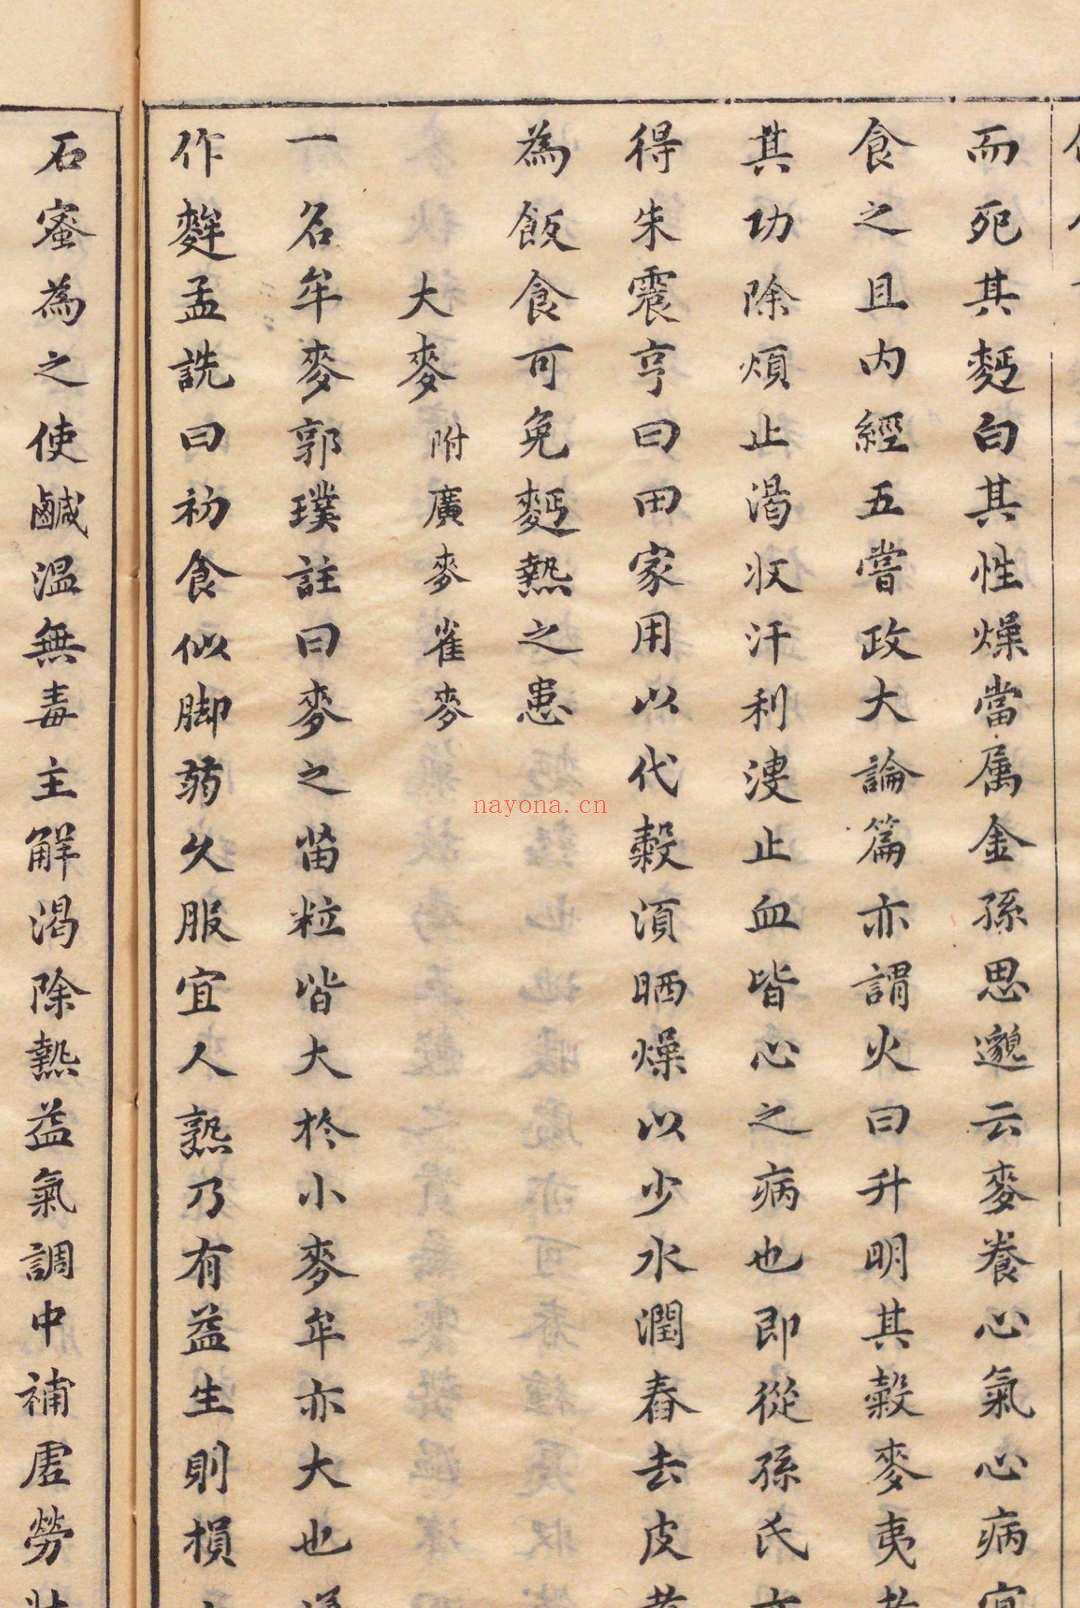 而死其麪白其性燥當属金孫思邈云麥養心氣心病宜
食之且内經五嘗政大論篇亦謂火曰升明其榖麥夷
其功除煩止渴収汗利溲止血皆心之病也即從孫氏亦
得朱震亨曰田家用以代榖湏晒燥以少水潤舂去皮
為飯食可免麪熱之患
大麥附廣麥雀麥
一名牟麥郭璞註曰麥之苗粒皆大於小麥牟亦大也
作麰孟詵曰初食似脚弱久服宜人熟乃有益生則損
石蜜為之使鹹溫無毒主解渴除熱益氣調中補虛勞
nayona.cn